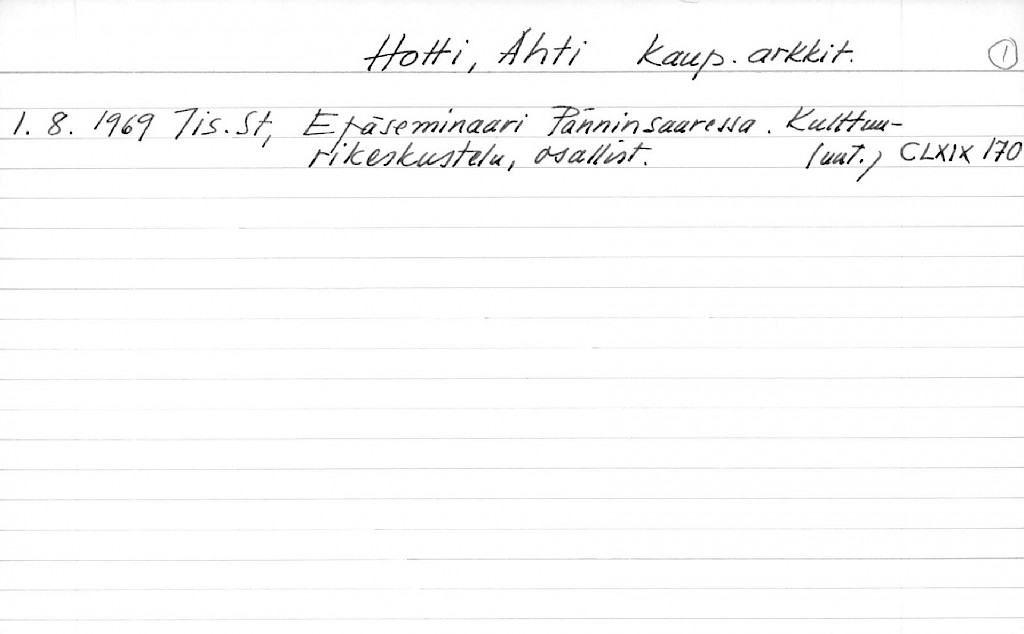 Hotti, Ahti kaup. arkkit. 1
1. 8. 1969 Tis. St, Eräseminaari Pänninsaaressa. Kulttuu-
rikeskustelu, osallist. (uut.) CLXIX 170